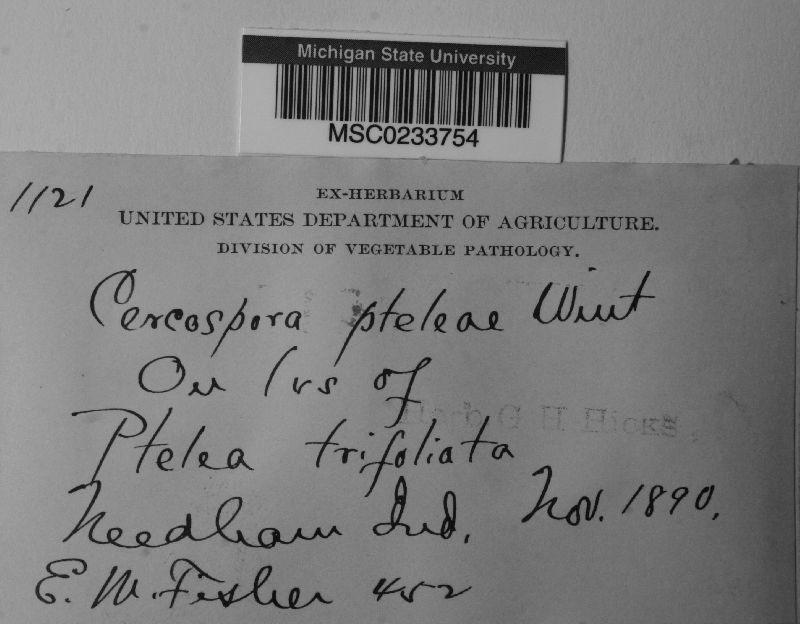 Michigan State University
MSC0233754
1121
EX-HERBARIUM
UNITED STATES DEPARTMENT OF AGRICULTURE.
DIVISION OF VEGETABLE PATHOLOGY.
Cercospora pteleae Wint
On lvs of
Herb G H Hicks.
Ptelea trifoliata
Needham Ind. Nov. 1890.
E. M. Fisher 452